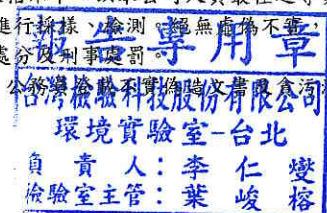 進行採樣、檢測。絕無虛偽不
報告專用章
處分及刑事處罰。
公務員登載不實偽造文書及貪污
台灣檢驗科技股份有限公司
環境實驗室-台北
負責人：李仁燮
檢驗室主管：葉峻榕